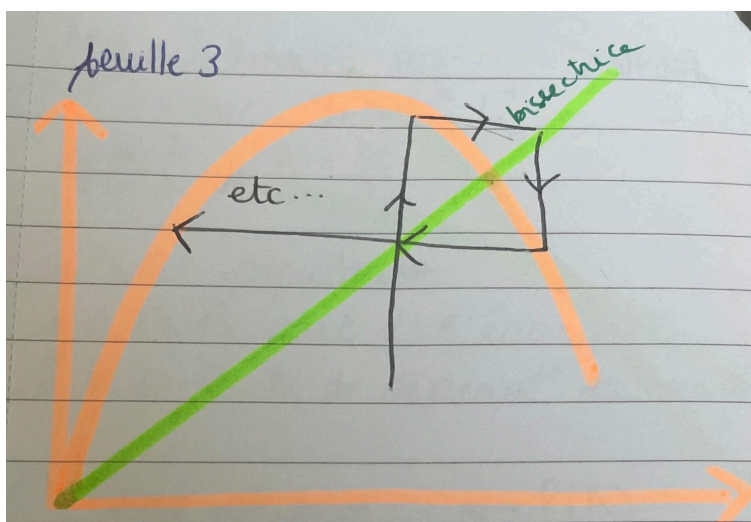 feuille 3
bissectrice
etc...